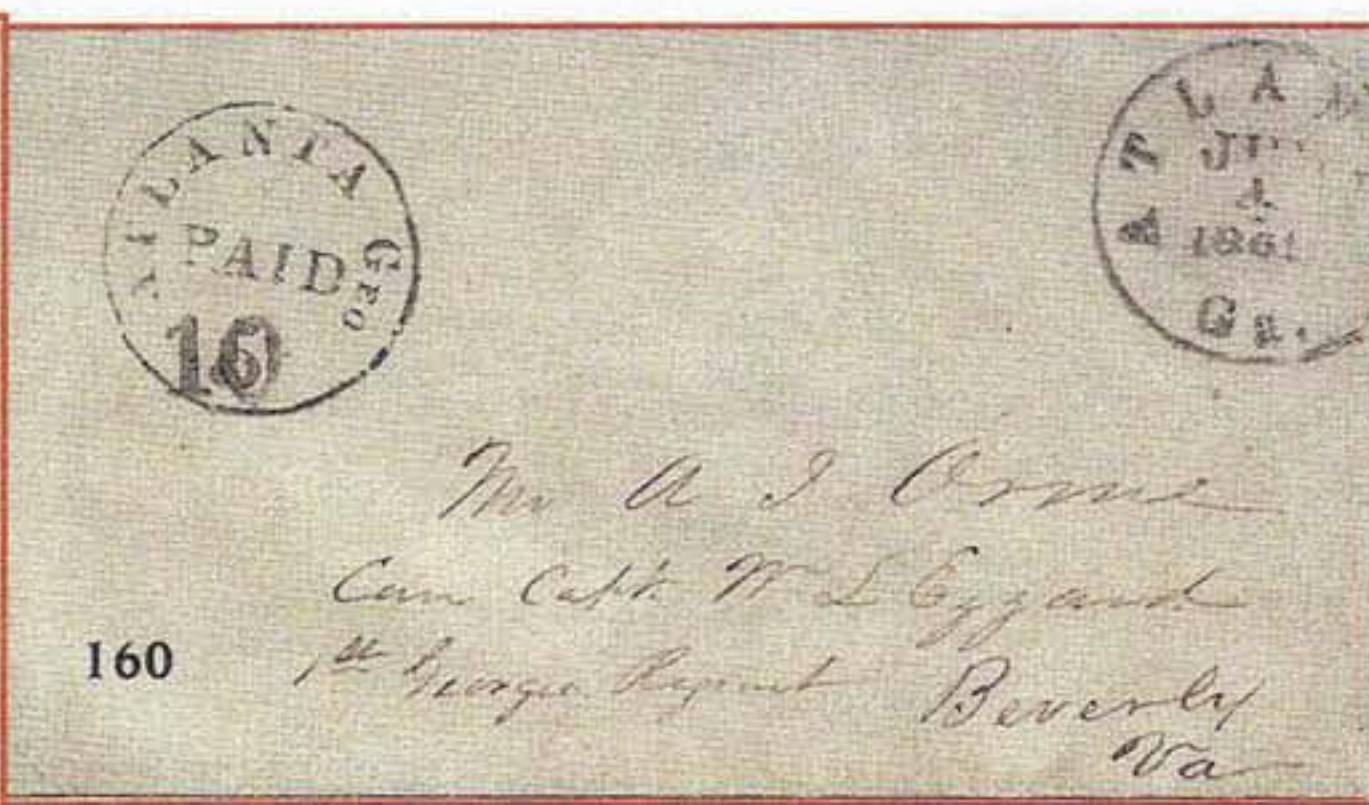 ATLANTA GEO
PAID
10
ATLA
4
1861
Ga.
Mr A J Orme
Care Capt. W L
1st Georgia Regiment
Beverly
Va
160